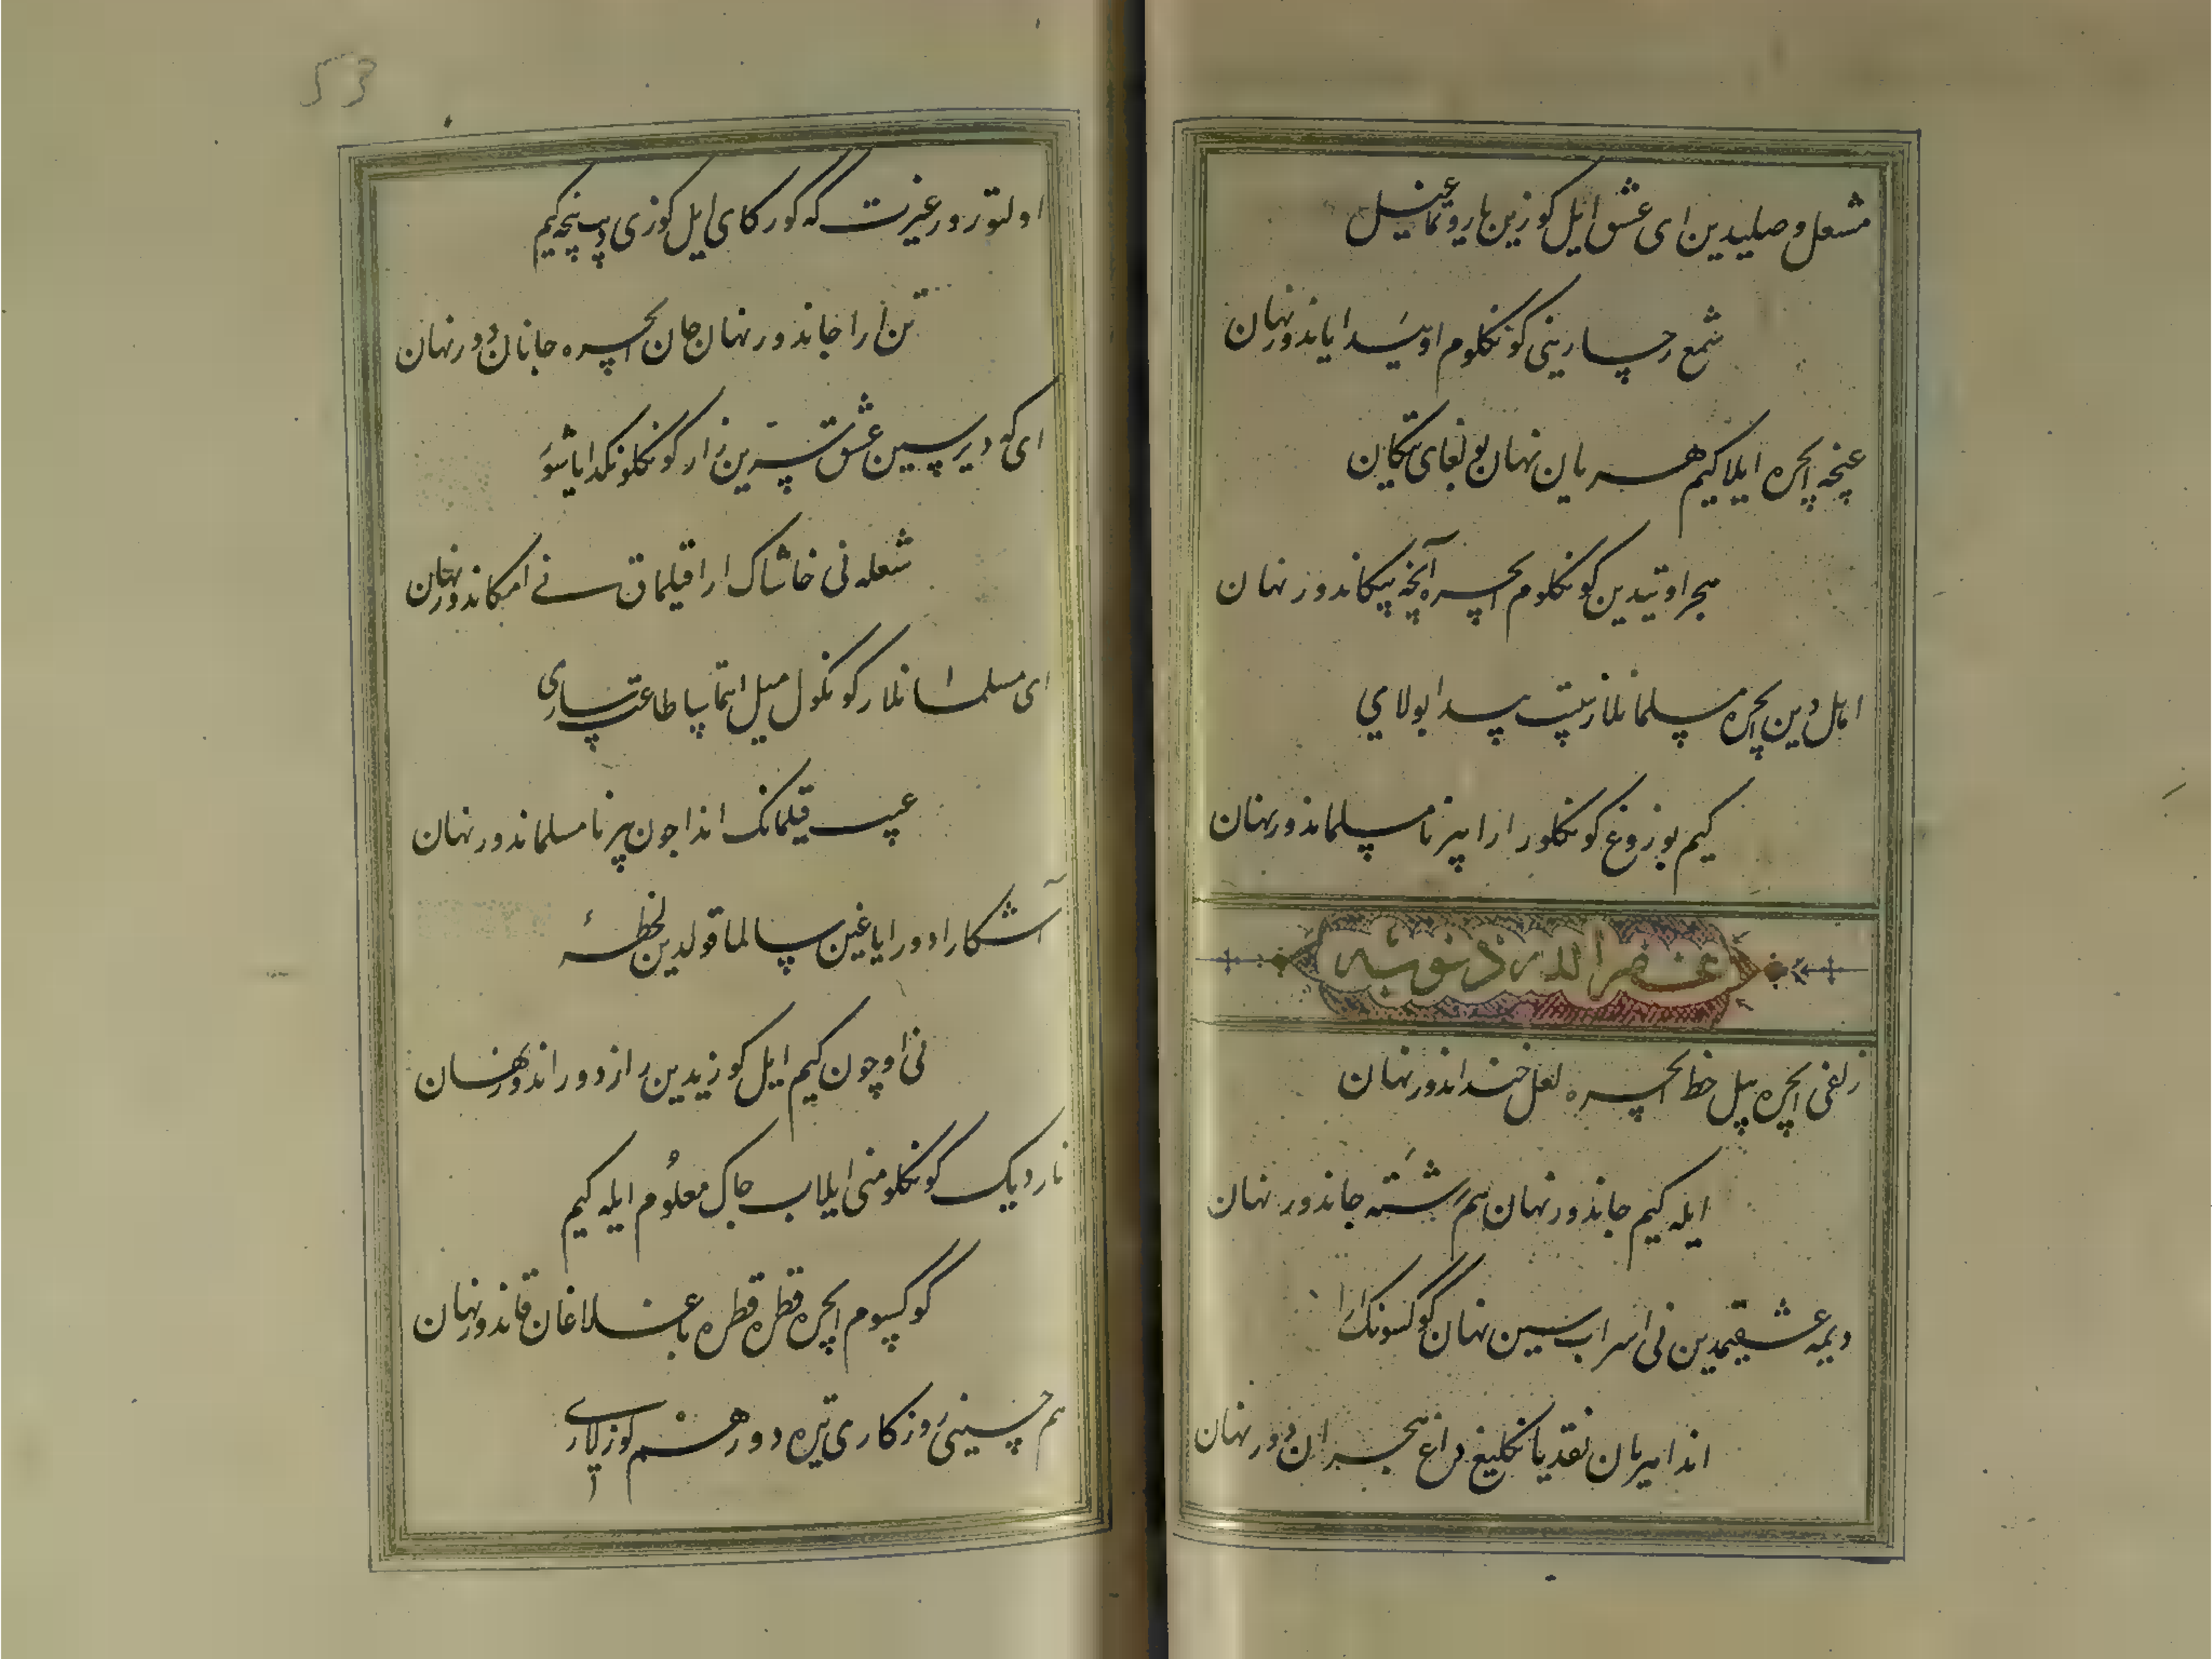 مشعل وصلیدین ای عشق ایل کوزین یاروتماغیل
شمع رخسارینی کونکلوم اویىدا یاندورنهان
غنچه ایچره ایلا کیم هر یان نهان بولغای تیکان
هجر اوتیدین کونکلوم ایچره آنچه پیکاندور نهان
اهل دین ایچره مسلمانلار نیتیب پیدا بولای
کیم بوزوغ کونکلوم ارا بیر نامسلماندور نهان
غفر الله ذنوبه
زلفی ایچره بیل خط ایچره لعل خنداندور نهان
ایله کیم جاندور نهان هم رشته جاندور نهان
دیمه عشقیمدین نی اسراب سین نهان کوکسونک ارا
اندا میرمان نقدیانکلیغ داغ هجراندور نهان
53
اولتورور غیرت که کورکای ایل کوزی دیب نچه کیم
تن ارا جاندور نهان جان ایچره جاناندور نهان
ای که دیرسین عشق سرین زار کونکلونکدا یاشور
شعله نی خاشاک ارا قیلماق نی امکاندور نهان
ای مسلمانلار کونکول میل ایتماسا طاعت ساری
عیب قیلمانک اندا چون بیر نامسلماندور نهان
آشکارا دور ایاغین سالما قولدین لحظه
نی اوچون کیم ایل کوزیدین راز دوراندور نهان
ناردیک کونکلومنی ایلاب چاک معلوم ایله کیم
کوکسوم ایچره قطره قطره باغلاغان قاندور نهان
هم حسینی روزکاری تیره دور هم کوزلاری